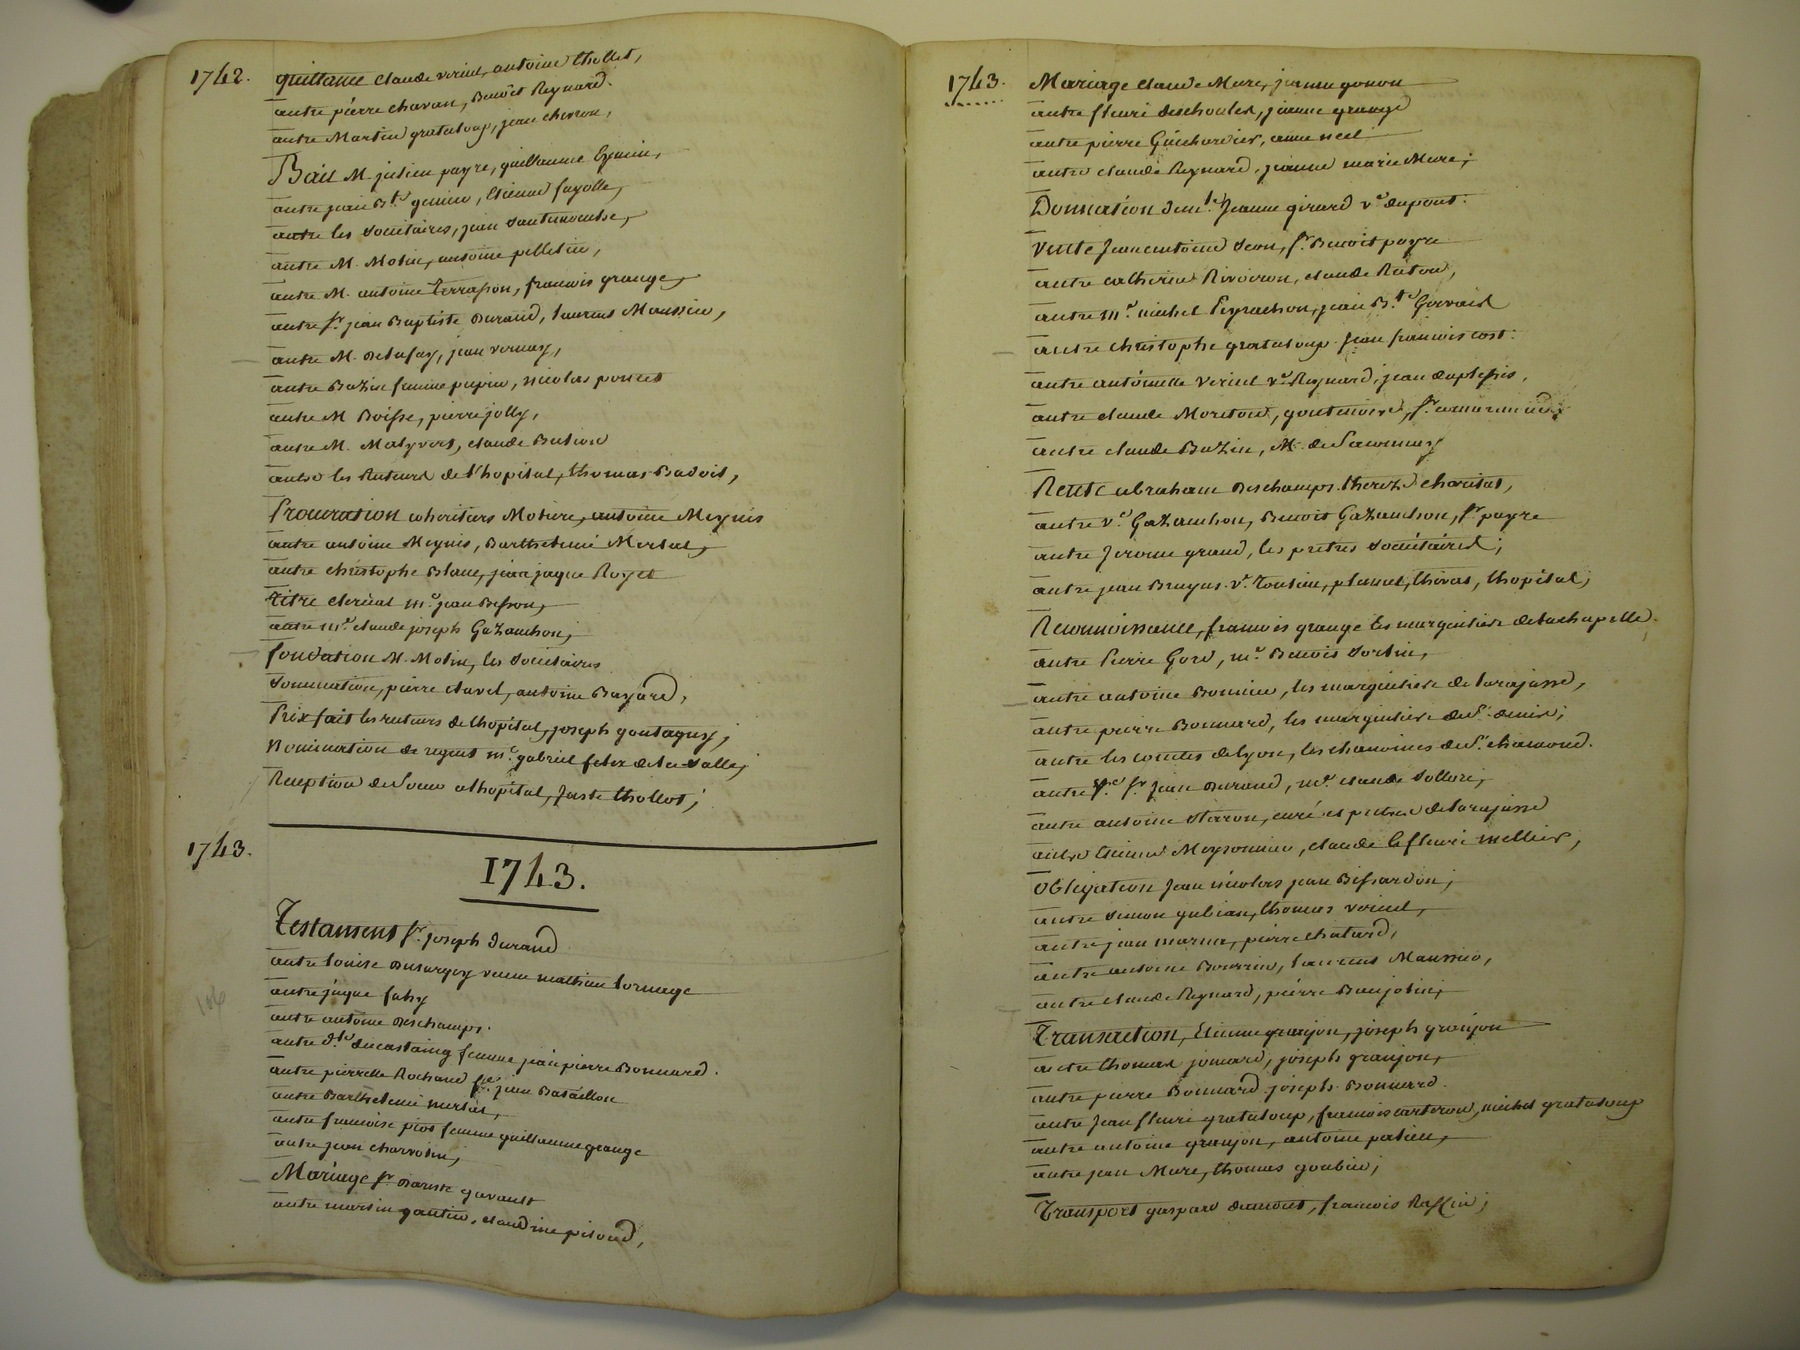 1742.
quittance claude vericel, antoine thollet,
autre pierre chavan, Benoît Reynard.
autre Martin grataloup, jean chevron,
Bail M. julien payre, guillaume Eymin,
autre jean B.te genin, Etienne fayolle,
autre les Societaires, jean
autre M. Molin, antoine pelletin,
autre M. antoine terrasson, francois grange,
autre Sr. jean Baptiste Durand, laurens Maussin,
autre M. Delafay, jean vernay,
autre Bazin femme pupin, nicolas poncet
autre M Boisse, pierre jolly,
autre M. Malyvert, claude Bution
autre les Recteurs de l'hopital, thomas Badoil,
Procuration coheritiers Moliere, antoine Meynis
autre antoine Meynis, Barthelemi Merlat,
autre christophe Blanc, jean jaque Royet
titre clerical me. jean Besson,
autre me. claude joseph Gazanchon,
fondation M. Molin, les Societaires
Sommation, pierre clavel, antoine Bayard,
Prix fait les recteurs de lhopital, joseph gontagny,
Nomination de regent me. gabriel felix de la Salle,
Reception de Soeur a lhopital, Juste thollot;
1743.
1743.
Testament Sr. joseph Durand
autre louise Dusurgey veuve mathieu lornage
autre jaque fahy
autre antoine Deschamps.
106
autre d.lle ducastaing femme jean pierre Bonnard.
autre pierrette Rochand fe. jean Bataillon
autre Barthelemi merlat,
autre francoise piot femme guillaume grange
autre jean charvolin,
Mariage Sr. gavault
autre martin gautier, claudine pitiod,
1743.
Mariage claude Mure, jeanne gonon
autre fleuri Deschoulet, jeanne grange
autre pierre Guichardier, anne neel
autre claude Reynard, jeanne marie Mure;
Donnation dem.lle Jeanne girard ve. dupont.
Vente Jean antoine Seon, Sr. Benoit payre
autre catherine Rivoiron, claude Raton,
autre me. michel Peyrachon, jean B.te Gervais
autre christophe grataloup jean francois cost.
autre antoinette Vericel ve. Reynard, jean duplessis,
autre claude Moreton, gontenoire, Sr.
autre claude Bazin, M. de
Rente abraham Deschamps. thereze charitat,
autre ve. Gazanchon, Benoit Gazanchon, Sr. payre
autre Jerome grand, les pretres Societaires;
autre jean Bruyas. ve. toulieu, planul, thivas, lhopital;
Reconnoissance, francois grange Les marguiliers de la chapelle.
autre Pierre Gord, me. Benoit Sorlin,
autre antoine Bonnin, les marguiliers de larajasse,
autre pierre Bonnard, les marguiliers de St. denis;
autre les comtes de lyon, les chanoines de St. chamond.
autre Sr. Jean Durand, me. claude Vollore,
autre antoine Staron, curé et pretres de larajasse
autre Etienne Meysonnier, claude & fleuri mellier,
Obligation Jean nicolas jean Bissardon;
autre Simon gubian, thomas vericel,
autre jean marna, pierre chatard,
autre antoine Bourrin, laurens Maussin,
autre claude Reynard, pierre Beaujolin,
Transaction, Etienne granjon, joseph granjon
autre thomas jomard, joseph granjon,
autre pierre Bonnard joseph Bonnard.
autre Jean fleuri grataloup, francois carteron, michel grataloup
autre antoine granjon, antoine poncieu,
autre jean Mure, thomas goubier;
Transport gaspard dumont, francois Rassin;